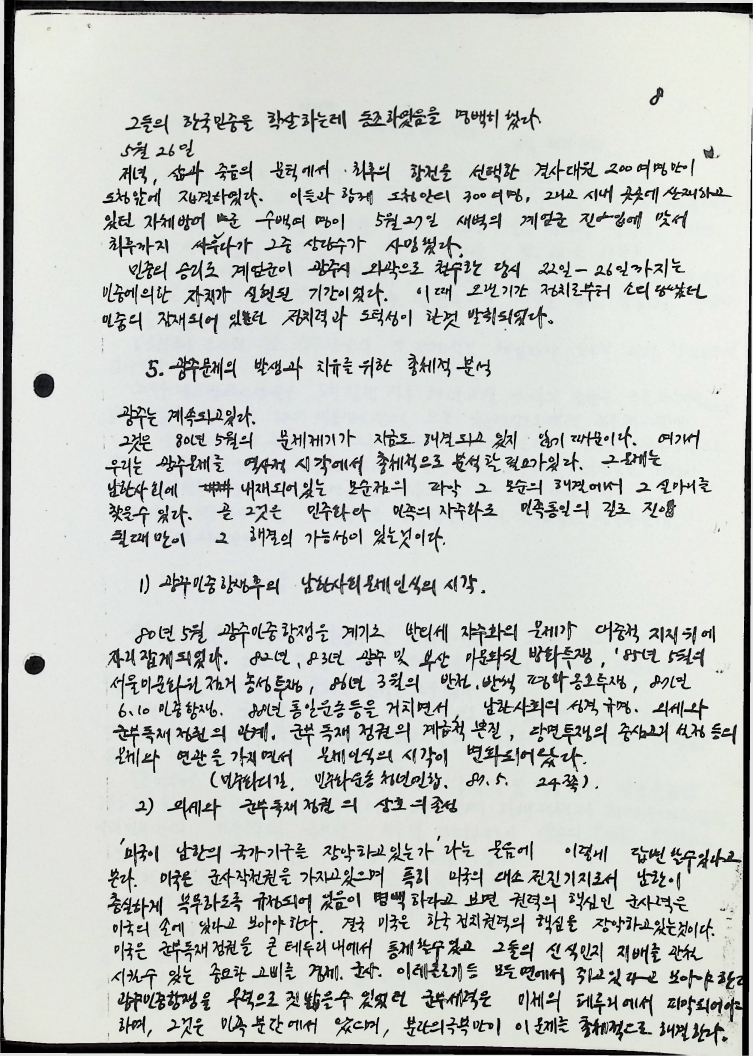 8
그들의 한국민중을 학살하는데 동조하였음을 명백히 했다.
5월 26일
저녁, 삶과 죽음의 문턱에서 최후의 항전을 선택한 결사대원 200여명만이
도청앞에 집결하였다. 이들과 함께 도청안의 300여명, 그리고 시내 곳곳에 산재하고
있던 자체방어 군 수백여 명이 5월 27일 새벽의 계엄군 진입에 맞서
최후까지 싸우다가 그중 상당수가 사망했다.
민중의 승리로 계엄군이 광주시 외곽으로 철수한 당시 22일 - 26일까지는
민중에의한 자치가 실현된 기간이었다. 이때 오랜기간 정치로부터 소외당했던
민중의 잠재되어 있던 정치력과 도덕성이 한껏 발휘되었다.
5. 광주문제의 발생과 치유를 위한 총체적 분석
광주는 계속되고있다.
그것은 80년 5월의 문제제기가 지금도 해결되고 있지 않기 때문이다. 여기서
우리는 광주문제를 역사적 시각에서 총체적으로 분석할 필요가있다. 그문제는
남한사회에 내재되어있는 모순점의 파악 그 모순의 해결에서 그 실마리를
찾을수 있다. 곧 그것은 민주화와 민족의 자주화로 민족통일의 길로 진입
될때만이 그 해결의 가능성이 있는것이다.
1) 광주민중항쟁후의 남한사회문제인식의 시각.
80년 5월 광주민중항쟁을 계기로 반외세 자주화의 문제가 대중적 지지위에
자리잡게되었다. 82년, 83년 광주 및 부산 미문화원 방화투쟁, '85년 5월의
서울미문화원 점거 농성투쟁, 86년 3월의 반전.반핵 평화옹호투쟁, 87년
6.10 민중항쟁. 88년 통일운동등을 거치면서 남한사회의 성격규명. 외세와
군부독재정권의 관계. 군부독재정권의 계급적 본질, 당면투쟁의 중심고리 설정 등의
문제와 연관을 가지면서 문제인식의 시각이 변화되어왔다.
(민주화의길. 민주화운동 청년연합. 87. 5. 24쪽).
2) 외세와 군부독재정권의 상호의존성
'미국이 남한의 국가기구를 장악하고있는가'라는 물음에 이렇게 답변할수있다고
본다. 미국은 군사작전권을 가지고있으며 특히 미국의 대소전진기지로서 남한이
충실하게 복무하도록 규정되어 있음이 명백하다고 보면 권력의 핵심인 군사력은
미국의 손에 있다고 보아야한다. 결국 미국은 한국정치권력의 핵심을 장악하고있는것이다.
미국은 군부독재정권을 큰 테두리내에서 통제할수있고 그들의 신식민지 지배를 관철
시킬수 있는 중요한 고비를 경제. 군사. 이데올로기등 모든면에서 쥐고있다고 보아야한다
광주민중항쟁을 무력으로 짓밟을수 있었던 군부세력은 미제의 테두리에서 파악되어야
하며, 그것은 민족분단에서 왔으며, 분단의극복만이 이문제를 총체적으로 해결한다.